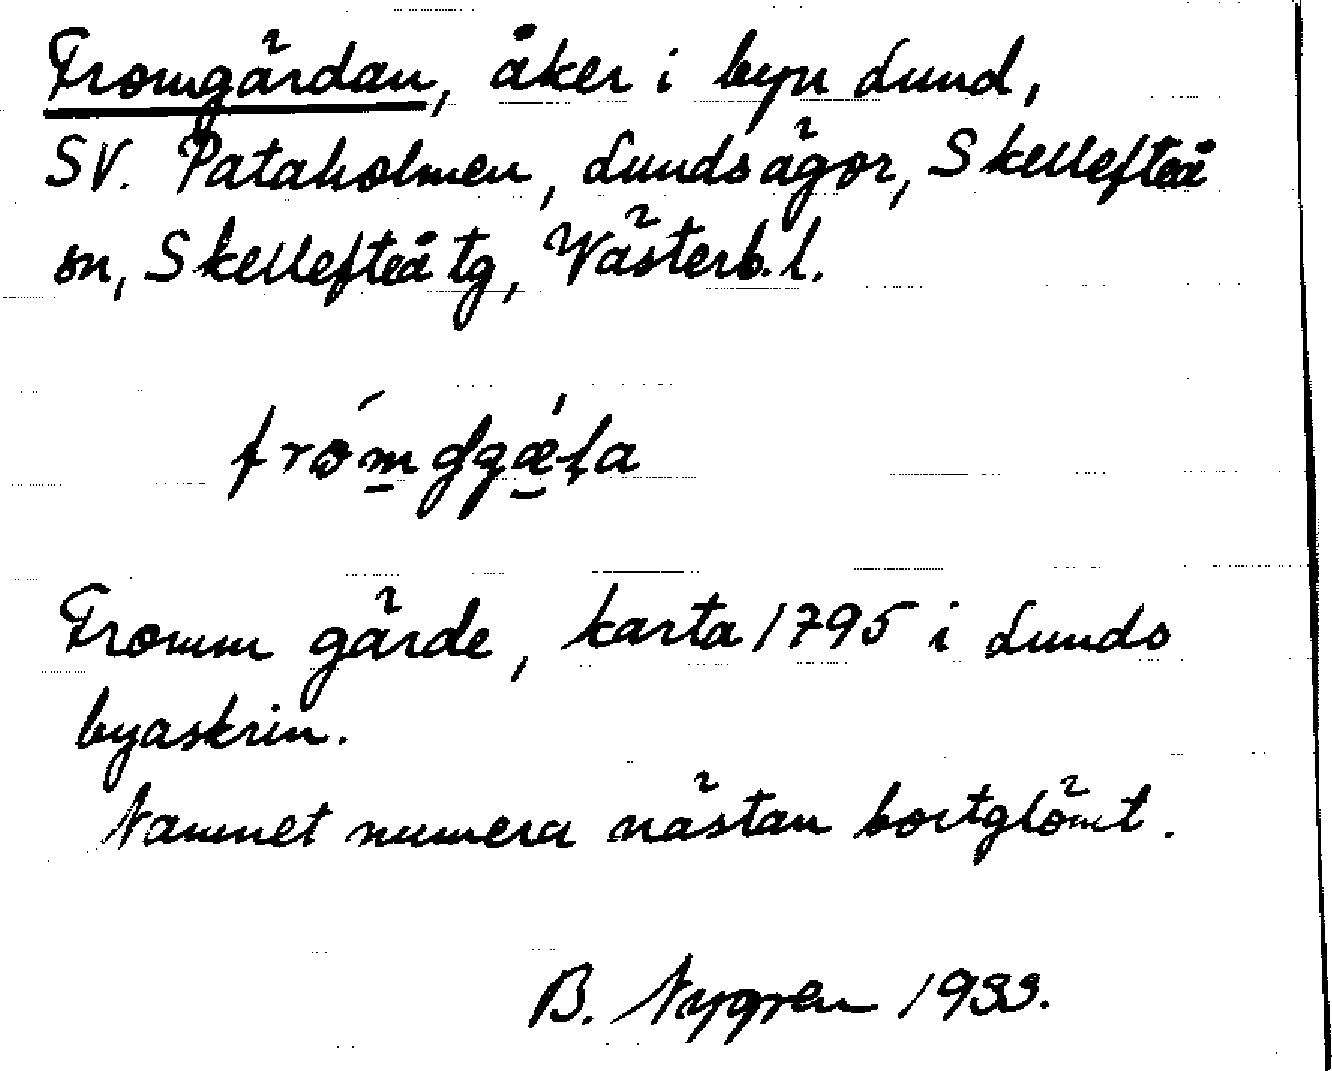 Fromgärdan, åker i byn Lund,
SV. Pataholmen, Lunds ägor, Skellefteå
sn, Skellefteå tg, Västerb. l.
Fromm gärde, karta 1795 i Lunds
byaskrin.
Namnet numera nästan bortglömt.
B. Nygren 1933.